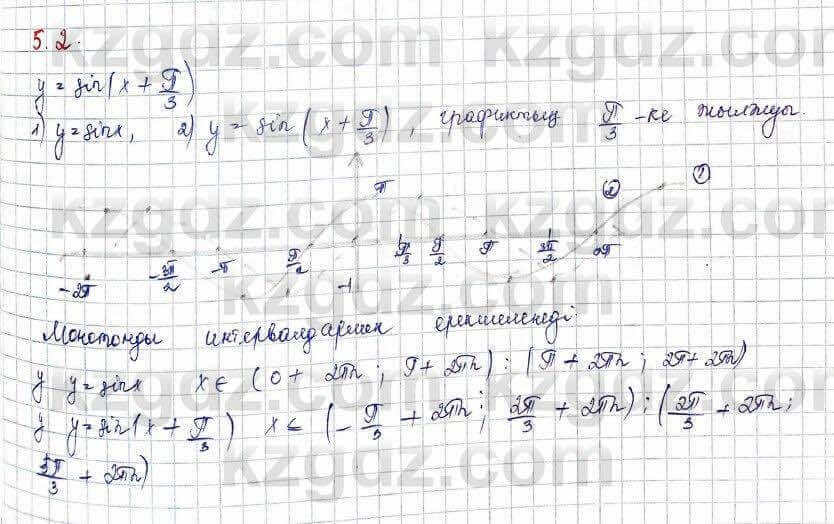 kzgdz.com
5.2.
y = sin(x + π/3)
1) y = sinx, 2) y = sin(x + π/3), графиктың π/3 -ке жылжуы.
π ② ①
-2π -3π/2 -π π/2 -1 π/3 π/2 π 3π/2 2π
Монотонды интервалдармен ерекшеленеді.
y y = sinx x ∈ (0 + 2πn; π + 2πn) : (π + 2πn; 2π + 2πn)
y y = sin(x + π/3) x ∈ (-π/3 + 2πn; 2π/3 + 2πn) : (2π/3 + 2πn;
5π/3 + 2πn)